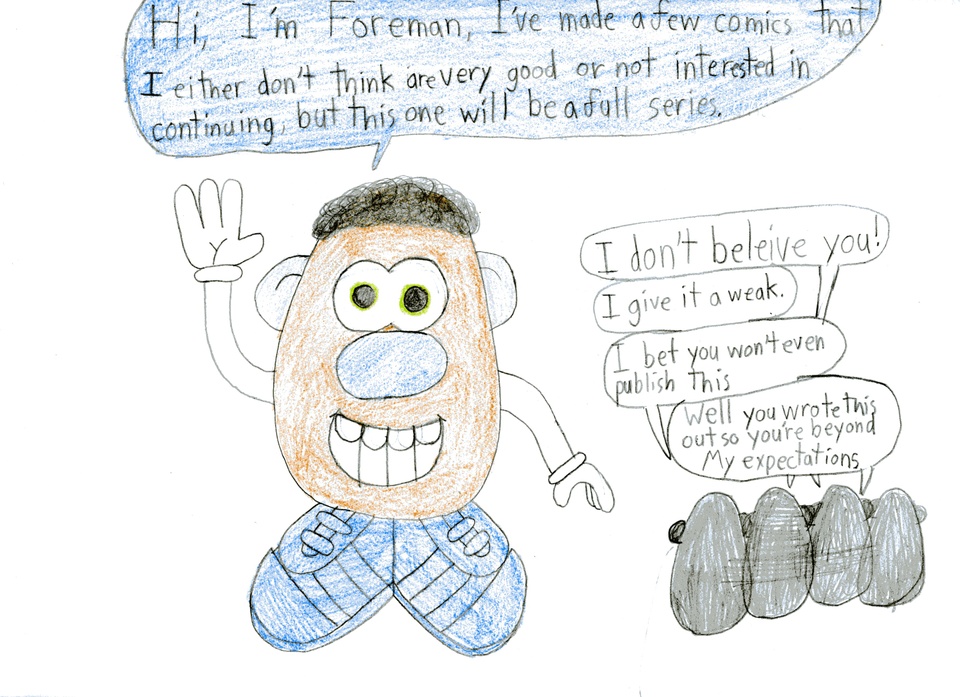 Hi, I'm Foreman, I've made a few comics that
I either don't think are very good or not interested in
continuing, but this one will be a full series.
I don't beleive you!
I give it a weak.
I bet you won't even
publish this
Well you wrote this
out so you're beyond
My expectations